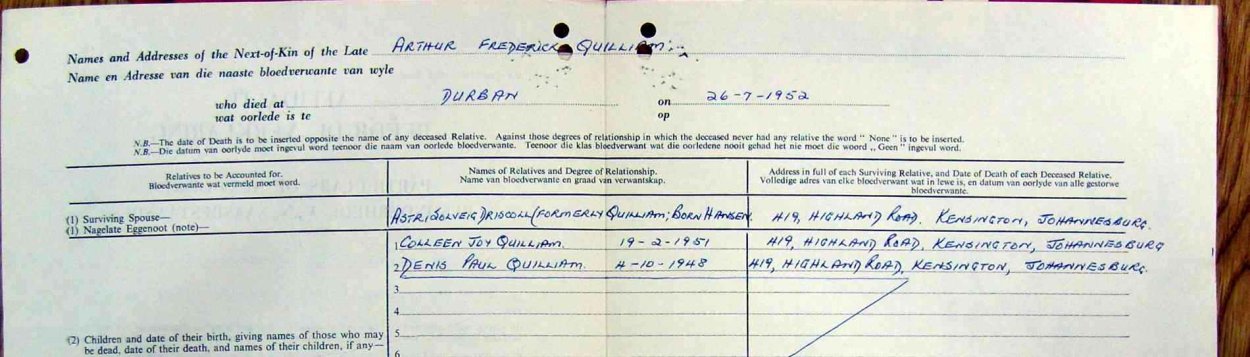 Names and Addresses of the Next-of-Kin of the Late ARTHUR FREDERICK QUILLIAM.
Name en Adresse van die naaste bloedverwante van wyle
who died at DURBAN on 26-7-1952
wat oorlede is te op
N.B.—The date of Death is to be inserted opposite the name of any deceased Relative. Against those degrees of relationship in which the deceased never had any relative the word " None " is to be inserted.
N.B.—Die datum van oorlyde moet ingevul word teenoor die naam van oorlede bloedverwante. Teenoor die klas bloedverwant wat die oorledene nooit gehad het nie moet die woord „ Geen " ingevul word.
Relatives to be Accounted for.
Bloedverwante wat vermeld moet word.
Names of Relatives and Degree of Relationship.
Name van bloedverwante en graad van verwantskap.
Address in full of each Surviving Relative, and Date of Death of each Deceased Relative.
Volledige adres van elke bloedverwant wat in lewe is, en datum van oorlyde van alle gestorwe
bloedverwante.
(1) Surviving Spouse—
(1) Nagelate Eggenoot (note)—
ASTRI SOLVEIG DRISCOLL (FORMERLY QUILLIAM; BORN HANSEN. 419, HIGHLAND ROAD. KENSINGTON, JOHANNESBURG.
1 COLLEEN JOY QUILLIAM. 19-2-1951 419, HIGHLAND ROAD, KENSINGTON, JOHANNESBURG
2 DENIS PAUL QUILLIAM. 4-10-1948 419, HIGHLAND ROAD, KENSINGTON, JOHANNESBURG.
3
4
5
6
(2) Children and date of their birth, giving names of those who may
be dead, date of their death, and names of their children, if any—